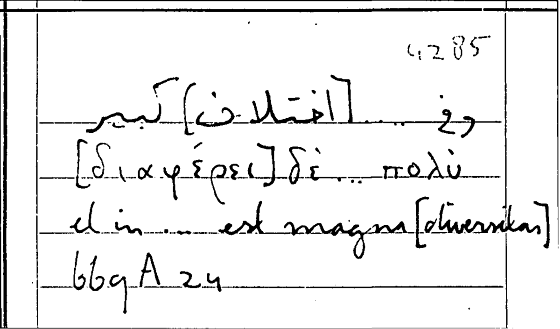 4285
وفى .... [اختلاف] كبير
[διαφέρει] δὲ ... πολὺ
et in ... est magna [diversitas]
669 A 24